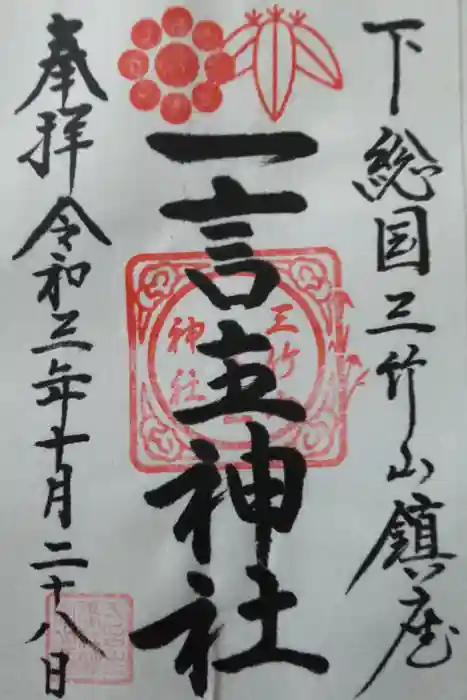 下総国三竹山鎮座
一言主神社
三竹山
神社
奉拝令和三年十月二十八日